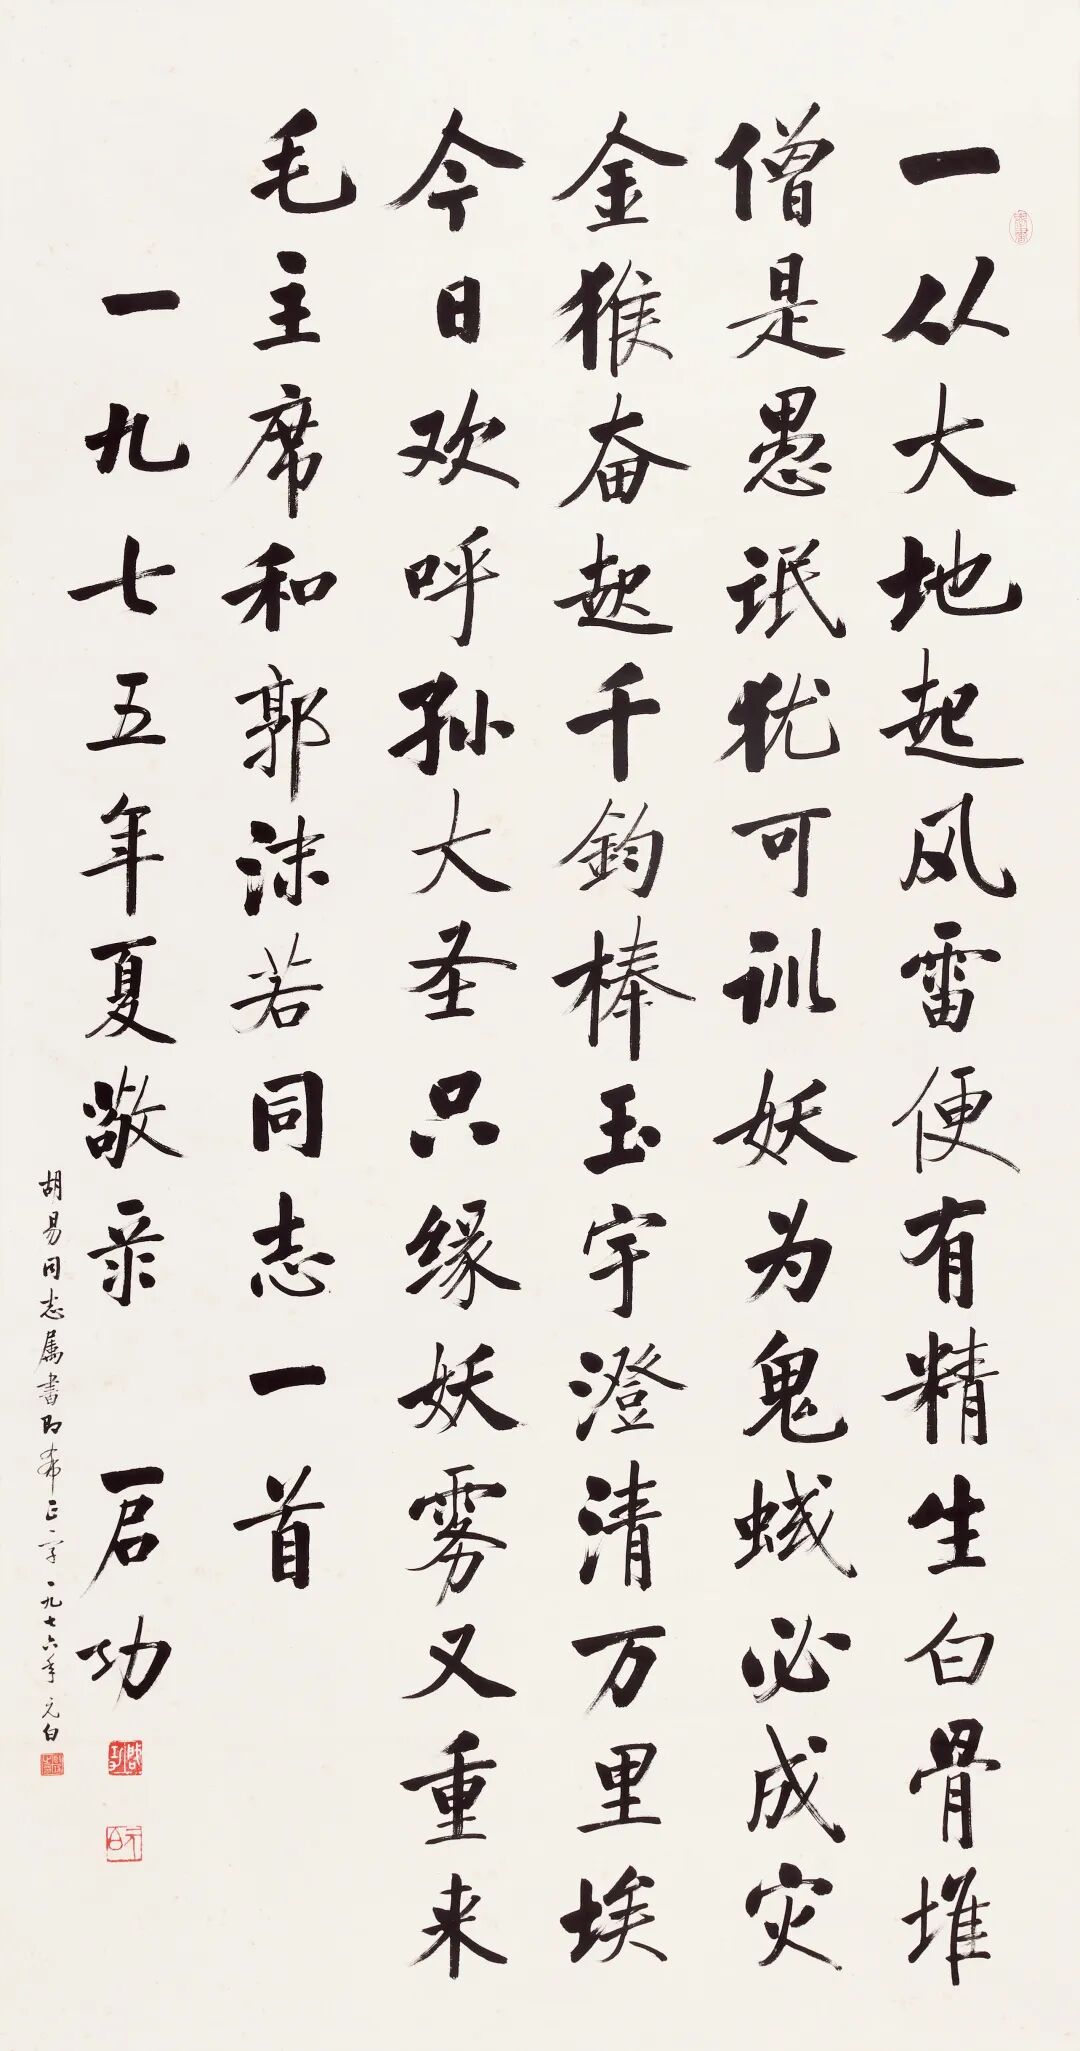 一从大地起风雷便有精生白骨堆
僧是愚氓犹可训妖为鬼蜮必成灾
金猴奋起千鈞棒玉宇澄清万里埃
今日欢呼孙大圣只缘妖雾又重来
毛主席和郭沫若同志一首
一九七五年夏敬录 启功
胡易同志属書即希正字 一九七六年 元白
启功
元白